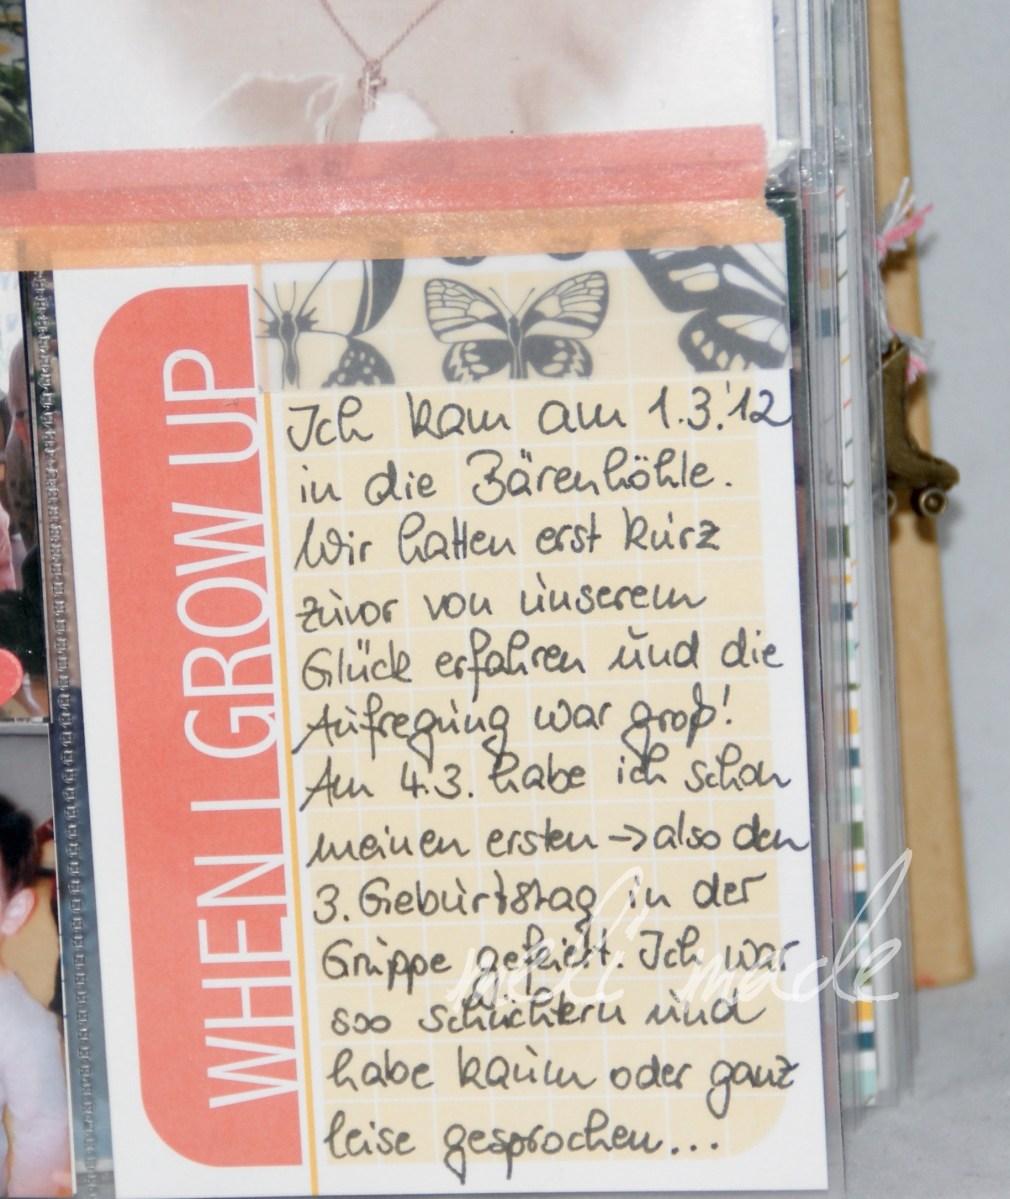 WHEN I GROW UP
Ich kam am 1.3.'12
in die Bärenhöhle.
Wir hatten erst kurz
zuvor von unserem
Glück erfahren und die
Aufregung war groß!
Am 4.3. habe ich schon
meinen ersten → also den
3. Geburtstag in der
Gruppe gefeiert. Ich war
soo schüchtern und
habe kaum oder ganz
leise gesprochen...
meli made